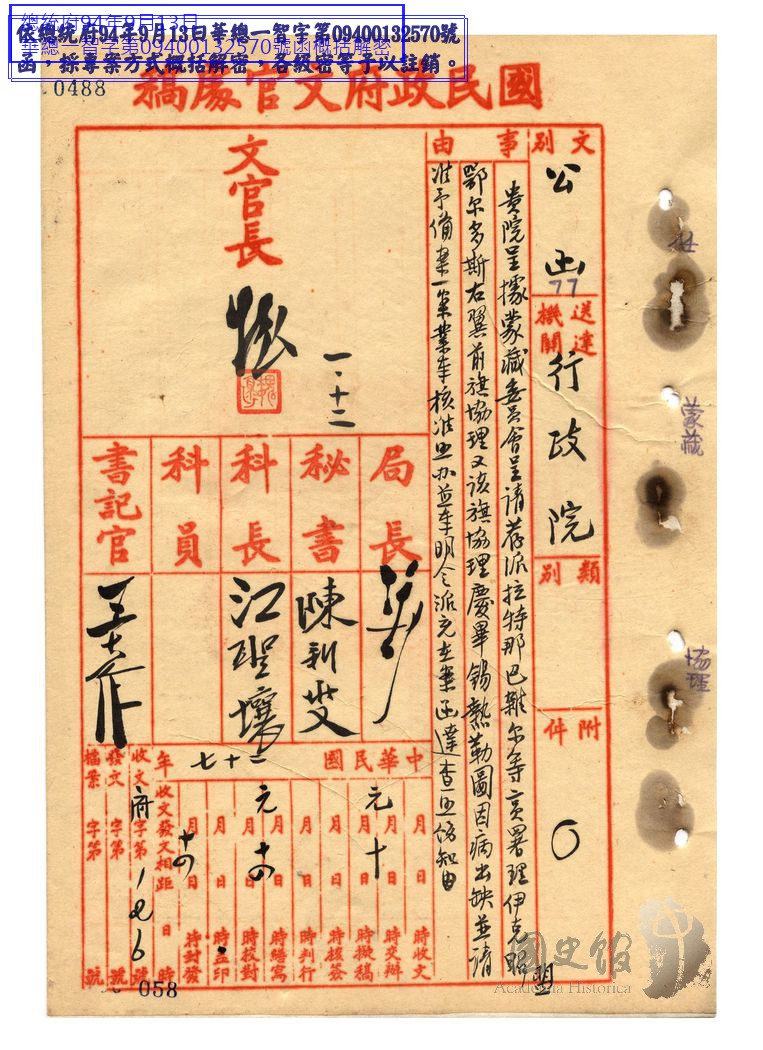 總統府94年9月13日
華總一智字第09400132570號函概括解密
依總統府94年9月13日華總一智字第09400132570號
函，採專案方式概括解密，各級密等予以註銷。
0488
國民政府文官處稿
文別
公函
77
送達機關
行政院
類別
附件
○
事由
貴院呈據蒙藏委員會呈請荐派拉特那巴雜尔等貢署理伊克昭盟
鄂尔多斯右翼前旗協理又該旗協理慶畢錫熱勒圖因病出缺並請
准予備案一案業奉核准照办並奉明令派充在案函達查照飭知由
文官長
一·十二
局長
秘書
陳新燮
科長
江聖壤
科員
書記官
中華民國二十七年
月日時收文
元月十日時交辦
月日時擬稿
月日時核簽
月日時判行
月日時繕寫
元月十四日時校對
月日時蓋印
月十四日時封發
收文發文相距日時
收文府字第176號
發文字第號
檔案字第號
058
蒙藏
協理
國史館
Academia Historica